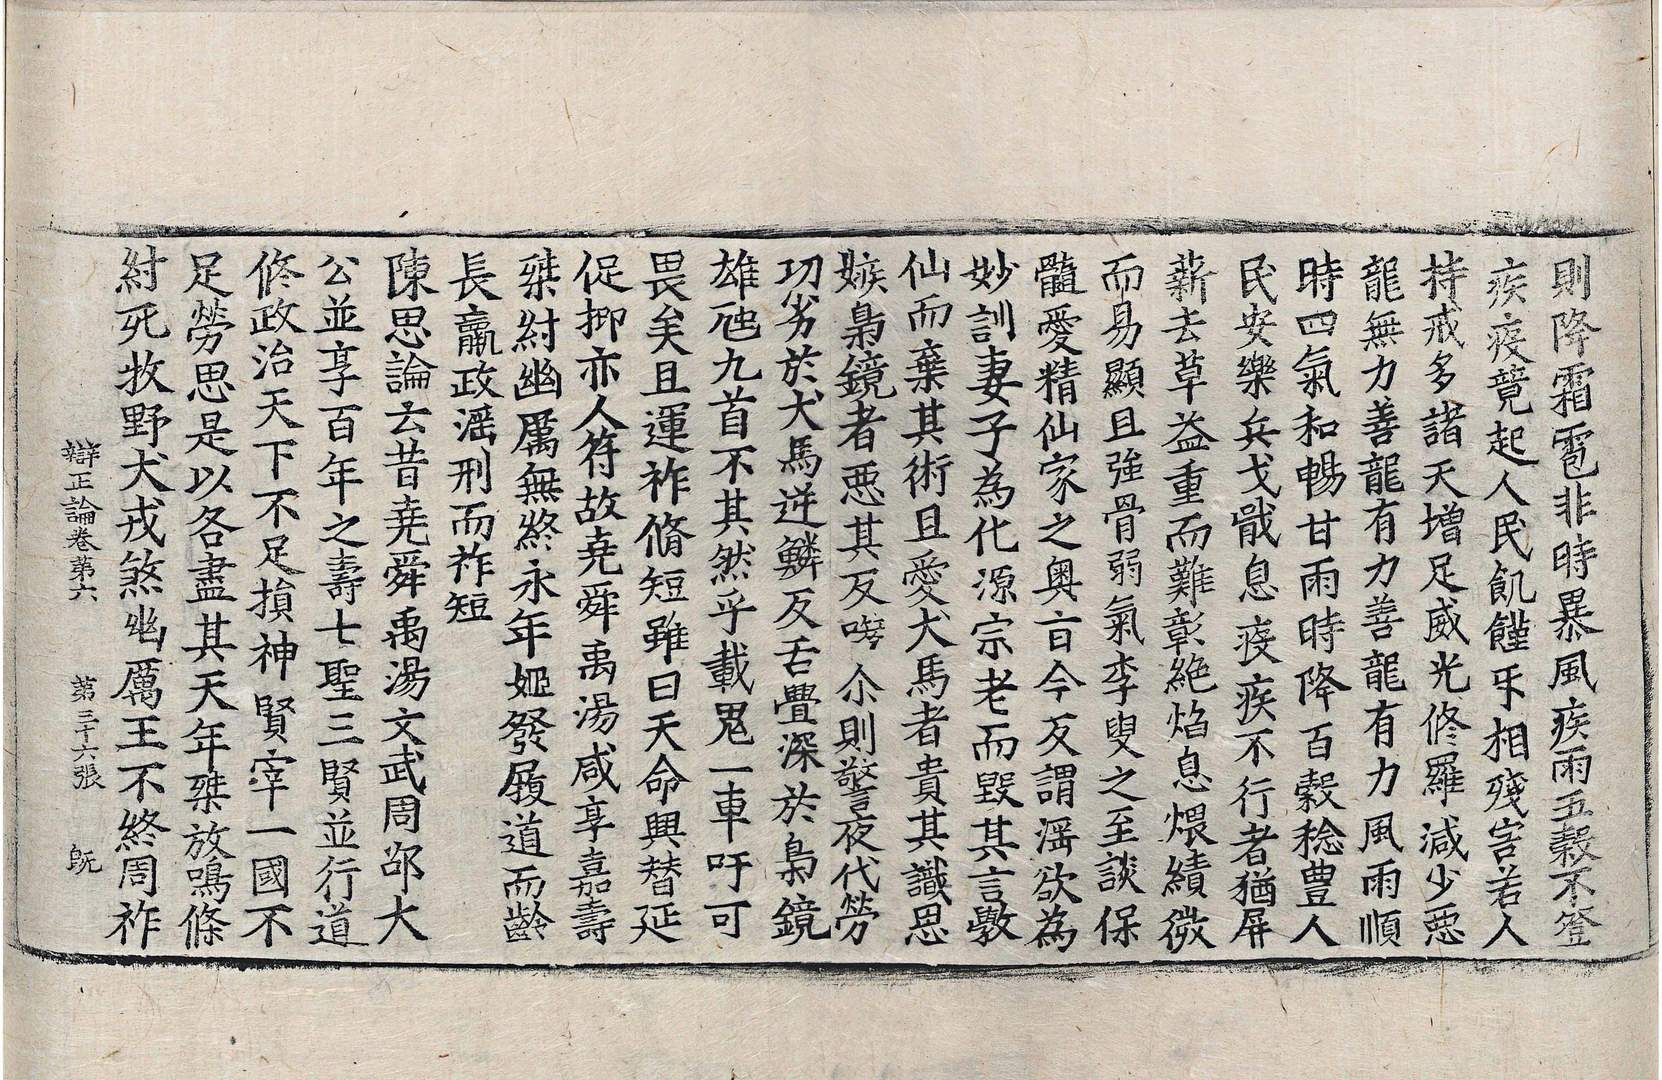 則降霜雹非時暴風疾雨五穀不登
疾疫競起人民飢饉牙相殘害若人
持戒多諸天增足威光修羅減少惡
龍無力善龍有力善龍有力風雨順
時四氣和暢甘雨時降百穀稔豊人
民安樂兵戈戢息疫疾不行者猶屏
薪去草益重而難彰絶焰息煨績微
而易顯且強骨弱氣李叟之至談保
髓愛精仙家之奥㫖今反謂滛欲為
妙訓妻子為化源宗老而毀其言斅
仙而棄其術且愛犬馬者貴其識恩
嫉梟鏡者惡其反噬尒則警夜代勞
功劣於犬馬逆鱗反舌舋深於梟鏡
雄虺九首不其然乎載鬼一車吁可
畏矣且運祚脩短雖曰天命興替延
促抑亦人符故堯舜禹湯咸享嘉壽
桀紂幽厲無終永年姬發履道而齡
長嬴政滛刑而祚短
陳思論云昔堯舜禹湯文武周邵大
公並享百年之壽七聖三賢並行道
修政治天下不足損神賢宰一國不
足勞思是以各盡其天年桀放鳴條
紂死牧野犬戎煞幽厲王不終周祚
辯正論卷第六　第三十六張　旣